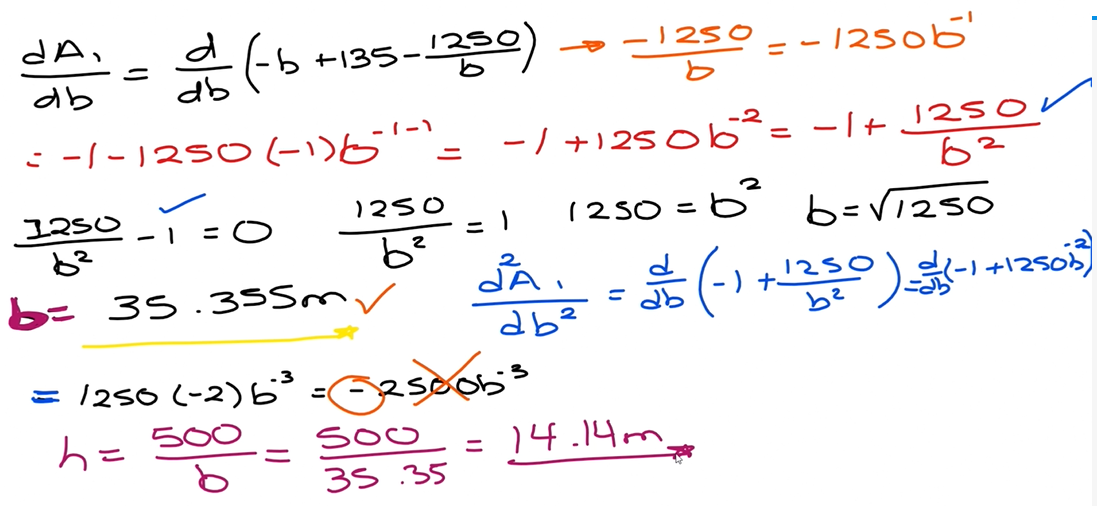 dA₁/db = d/db (-b + 135 - 1250/b) → -1250/b = -1250b⁻¹
= -1 - 1250 (-1)b⁻¹⁻¹ = -1 + 1250b⁻² = -1 + 1250/b² ✓
1250/b² - 1 ✓ = 0 1250/b² = 1 1250 = b² b = √1250
b = 35.355m ✓ d²A₁/db² = d/db (-1 + 1250/b²) = d/db (-1 + 1250b⁻²)
= 1250 (-2) b⁻³ = -2500b⁻³
h = 500/b = 500/35.35 = 14.14m